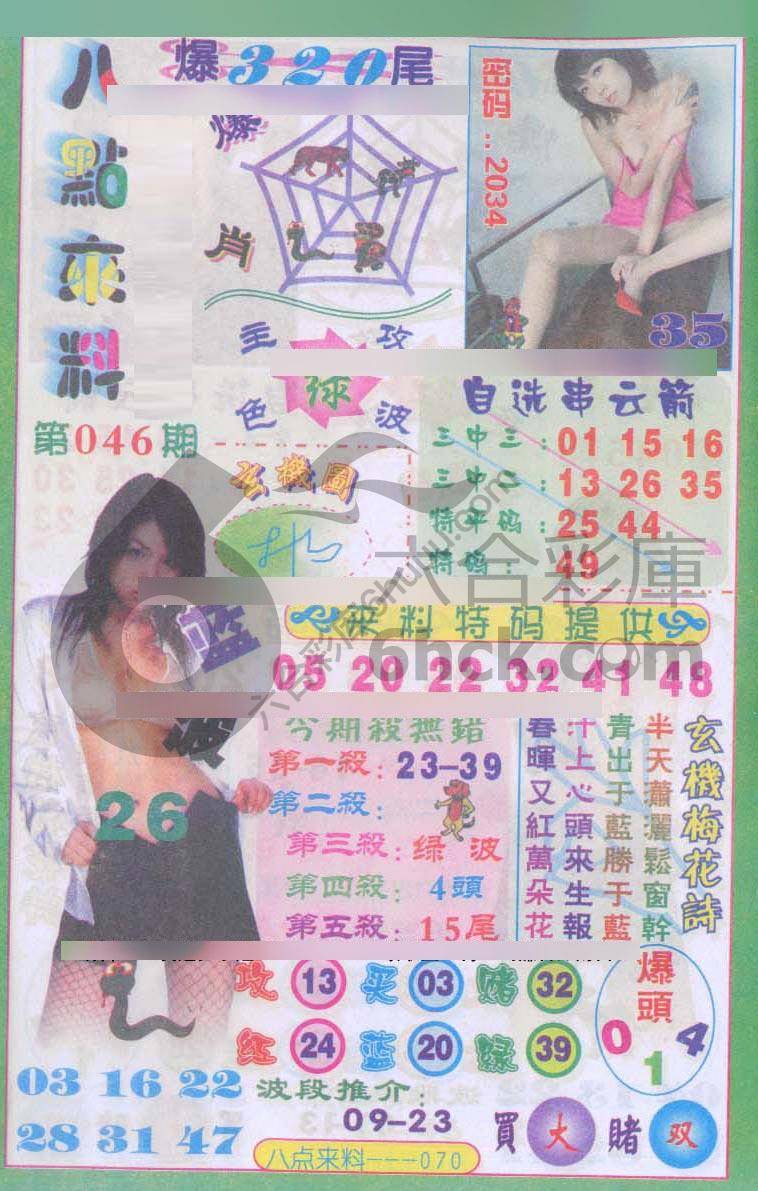 八點來料
爆320尾
爆肖
密码..2034
35
主攻
绿
色波
第046期
玄機圖
自选串云箭
三中三:01 15 16
三中二:13 26 35
特平码:25 44
特码:49
六合彩庫
6hck.com
来料特码提供
05 20 22 32 41 48
蓝波
26
今期殺無錯
第一殺:23-39
第二殺:
第三殺:绿波
第四殺:4頭
第五殺:15尾
玄機梅花詩
半天瀟灑鬆窗幹
青出于藍勝于藍
汁上心頭來生報
春暉又紅萬朵花
攻 13 买 03 赌 32
红 24 蓝 20 绿 39
爆頭
0 1 4
03 16 22
28 31 47
波段推介:
09-23
買大賭双
八点来料---070